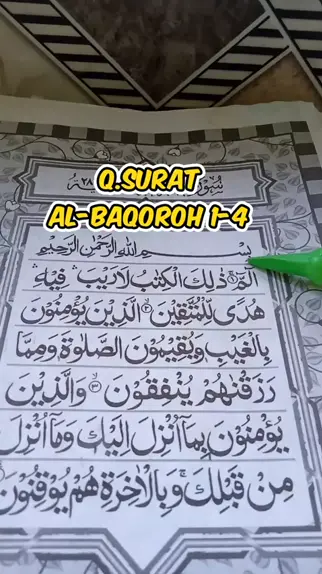 Q.SURAT
AL-BAQOROH 1-4
بِسْمِ اللّٰهِ الرَّحْمٰنِ الرَّحِيْمِ
الٓمّٓ ۚ۝١ ذٰلِكَ الْكِتٰبُ لَارَيْبَ ۛ فِيْهِ ۛ
هُدًى لِّلْمُتَّقِيْنَ ۝٢ الَّذِيْنَ يُؤْمِنُوْنَ
بِالْغَيْبِ وَيُقِيْمُوْنَ الصَّلٰوةَ وَمِمَّا
رَزَقْنٰهُمْ يُنْفِقُوْنَ ۝٣ وَالَّذِيْنَ
يُؤْمِنُوْنَ بِمَآ اُنْزِلَ اِلَيْكَ وَمَآ اُنْزِلَ
مِنْ قَبْلِكَ ۚ وَبِالْاٰخِرَةِ هُمْ يُوْقِنُوْنَ